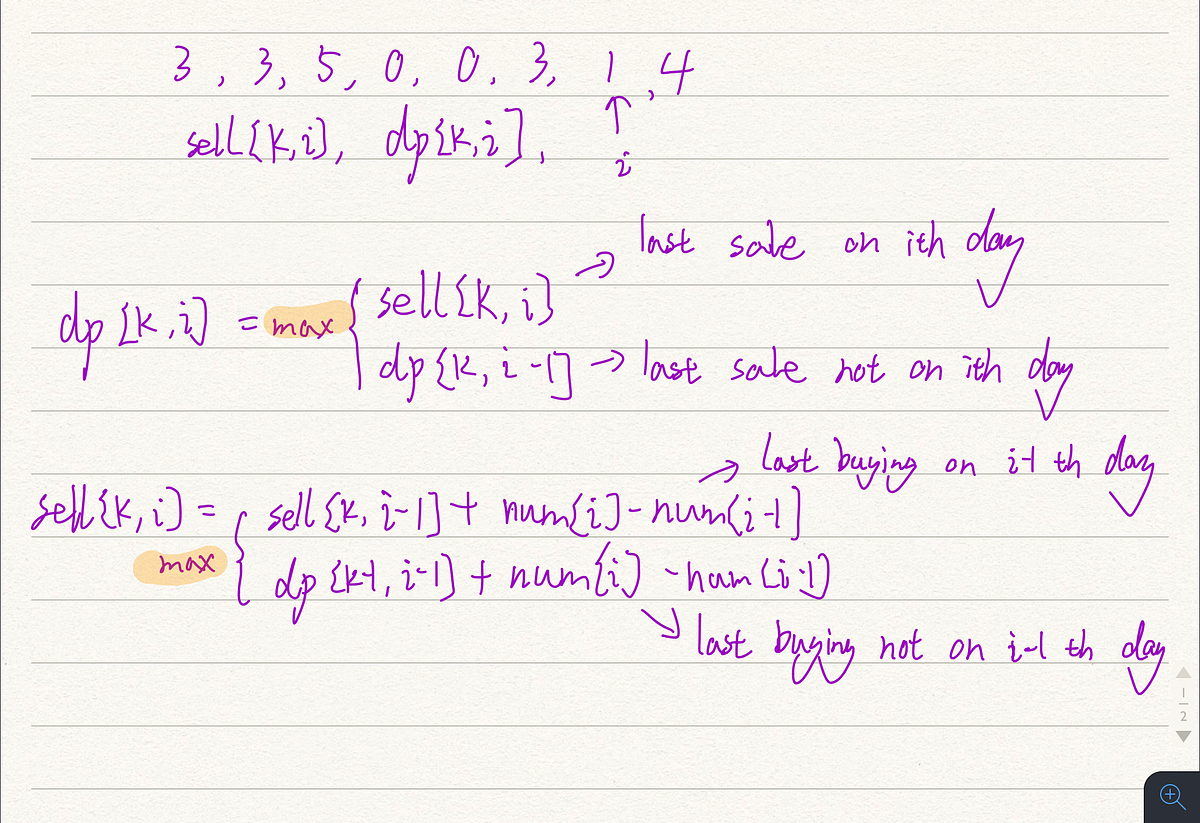 3, 3, 5, 0, 0, 3, 1, 4
sell[k,i], dp[k,i], ↑
i
→ last sale on ith day
dp[k,i] = max { sell[k,i]
dp[k,i-1] → last sale not on ith day
→ last buying on i-1 th day
sell[k,i] = { sell[k,i-1] + num[i] - num[i-1]
max
dp[k-1,i-1] + num[i] - num[i-1]
↘ last buying not on i-1 th day
1
2